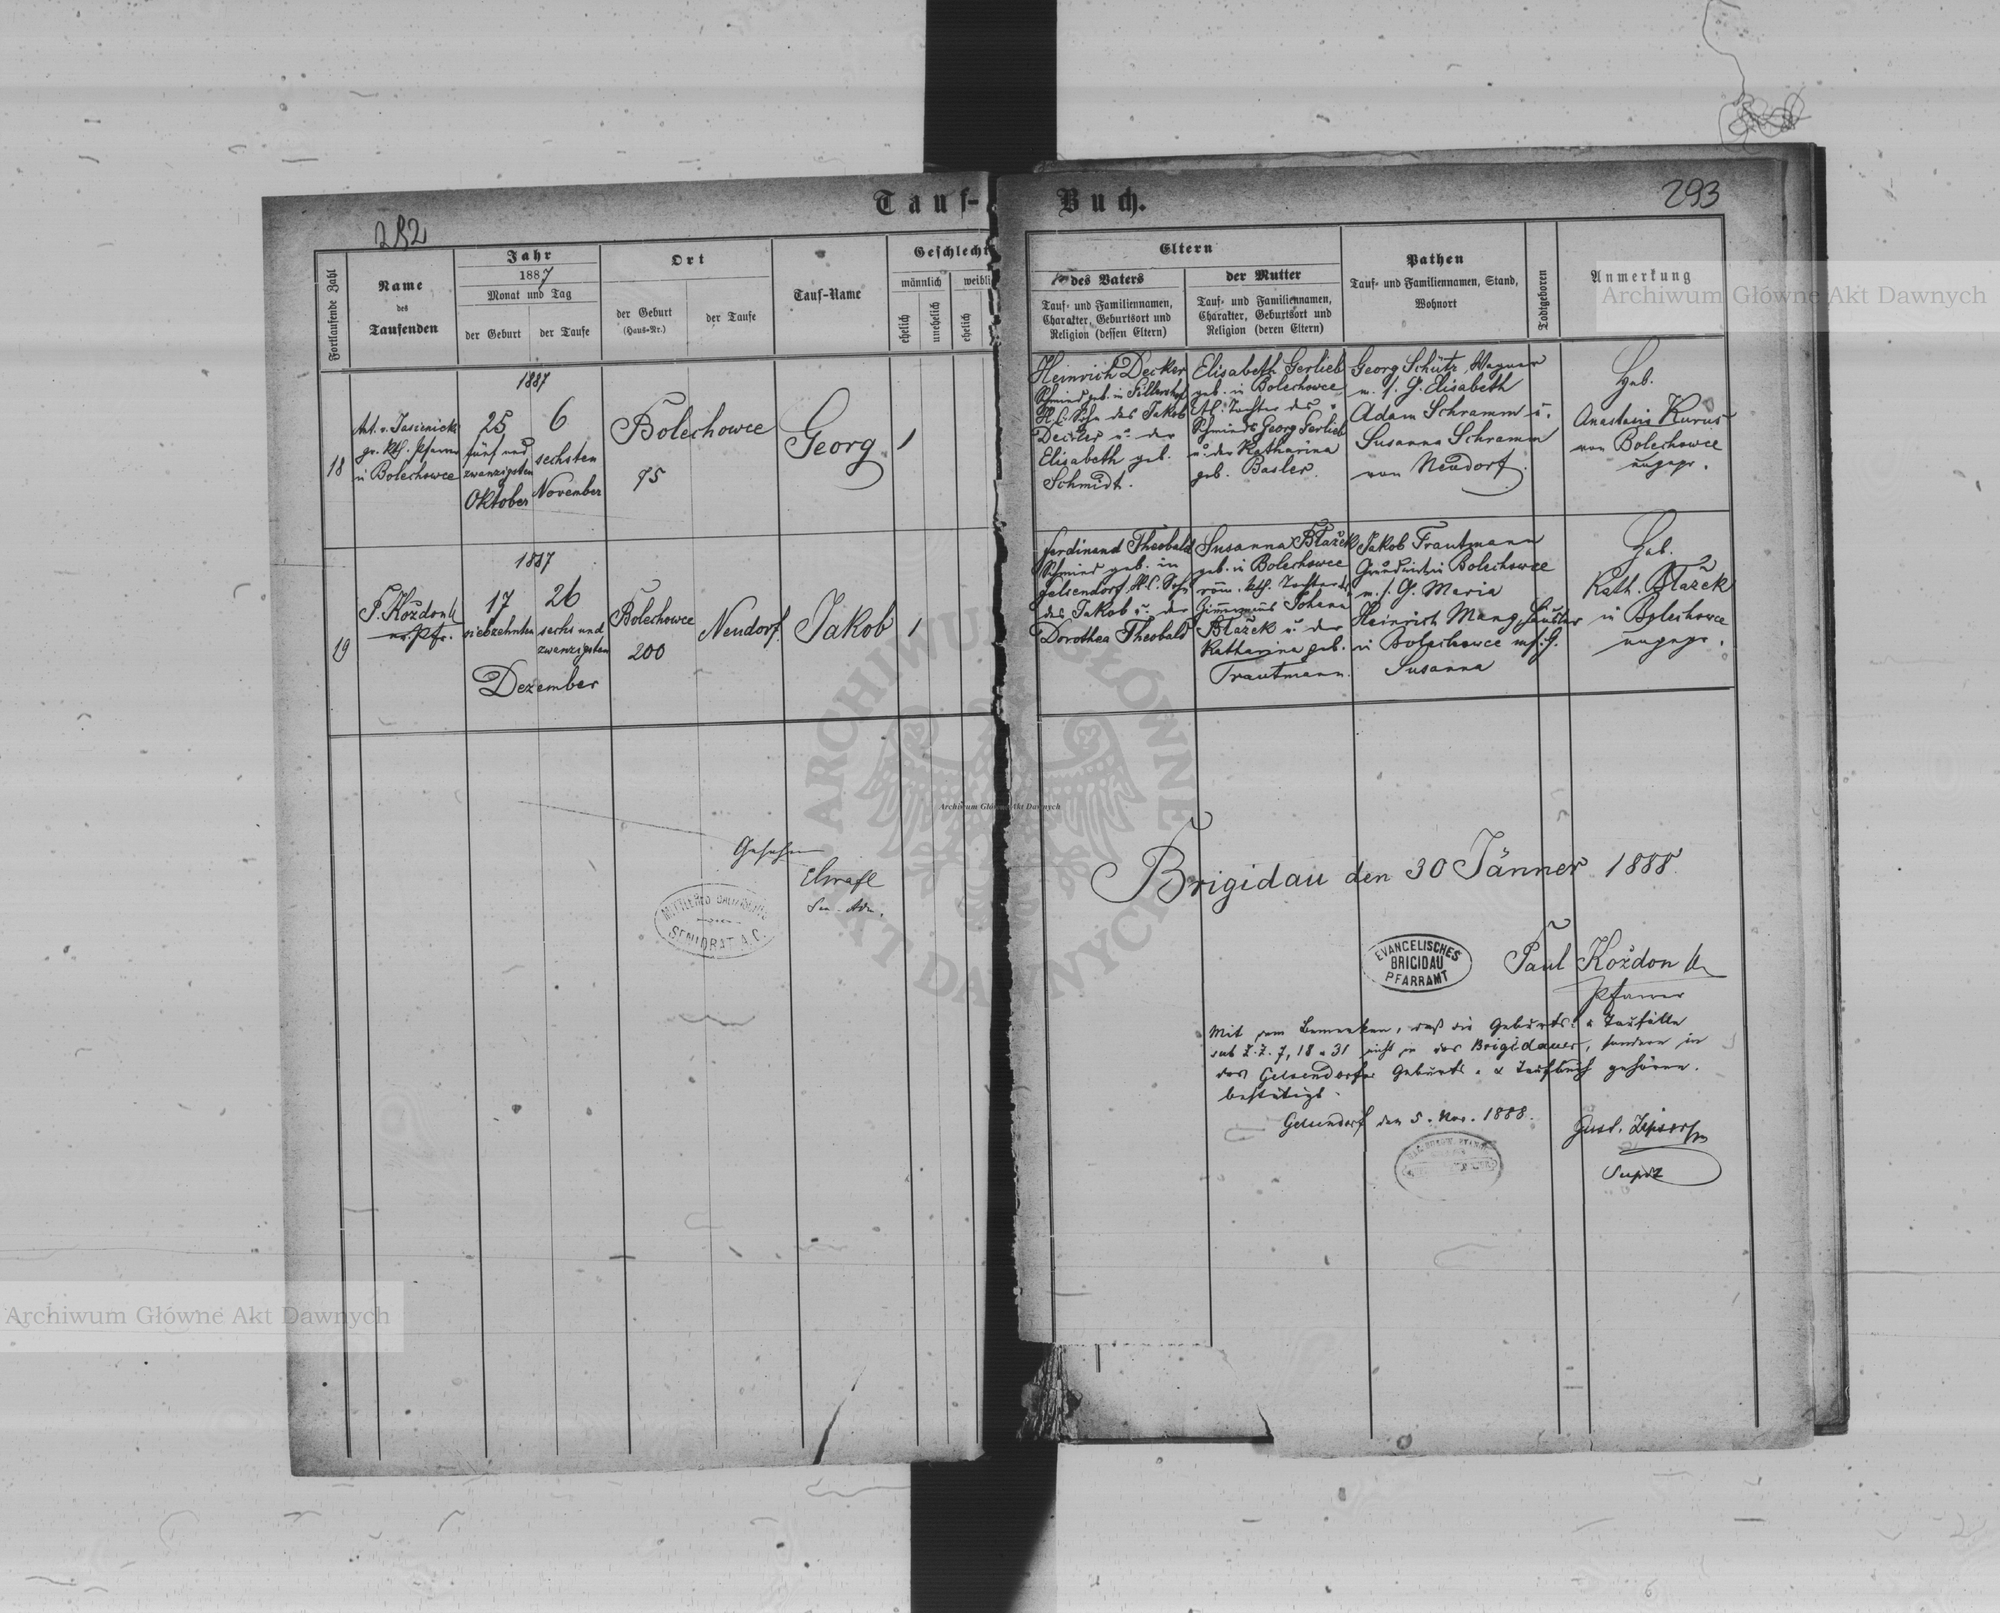 Tauf-Buch.
292
293
Fortlaufende Zahl
Name
des
Taufenden
Jahr
1887
Monat und Tag
der Geburt
der Taufe
Ort
der Geburt
(Haus-Nr.)
der Taufe
Tauf-Name
Geschlecht
männlich
ehelich
unehelich
weibli
ehelich
Eltern
des Vaters
Tauf- und Familiennamen,
Charakter, Geburtsort und
Religion (dessen Eltern)
der Mutter
Tauf- und Familiennamen,
Charakter, Geburtsort und
Religion (deren Eltern)
Pathen
Tauf- und Familiennamen, Stand,
Wohnort
Todtgeboren
Anmerkung
18
Ant. v. Jasienicki
gr. kth. Pfarrer
in Bolechowce
1887
25
fünf und
zwanzigsten
Oktober
6
sechsten
November
Bolechowce
95
Georg
1
Heinrich Decker
Schmied geb. in
H. C. Sohn des Jakob
Decker u. der
Elisabeth geb.
Schmidt.
Elisabeth Gerlieb
geb. in Bolechowce
Tochter des
Schmieds Georg Gerlieb
u. der Katharina
geb. Basler.
Georg Schütz, Wagner
m. s. G. Elisabeth
Adam Schramm u.
Susanna Schramm
von Neudorf.
Heb.
Anastasia Kurus
von Bolechowce
ungepr.
19
P. Koždon
Pfr.
1887
17
siebzehnten
26
sechs und
zwanzigsten
Dezember
Bolechowce
200
Neudorf
Jakob
1
Ferdinand Theobald
Schmied geb. in
Gelsendorf H. C. Sohn
des Jakob u. der
Dorothea Theobald
Susanna Blažek
geb. in Bolechowce
röm. kth. Tochter des
Zimmermanns Johann
Blažek u. der
Katharina geb.
Trautmann.
Jakob Trautmann
Grundwirt in Bolechowce
m. s. G. Maria
Heinrich Mang, Häusler
in Bolechowce m. s. G.
Susanna
Heb.
Kath. Blažek
in Bolechowce
ungepr.
Gesehen
SENIORAT A.C.
Brigidau den 30 Jänner 1888.
EVANGELISCHES
BRIGIDAU
PFARRAMT
Paul Koždon
Pfarrer
Mit dem Bemerken, daß die Geburts- u Taufälle
sub Z. Z. 7, 18 u 31 nicht in das Brigidauer, sondern in
das Gelsendorfer Geburts- u Taufbuch gehören.
bestätigt.
Gelsendorf den 5. Nov. 1888.
Archiwum Główne Akt Dawnych
Archiwum Główne Akt Dawnych
Archiwum Główne Akt Dawnych
ARCHIWUM GŁÓWNE AKT DAWNYCH